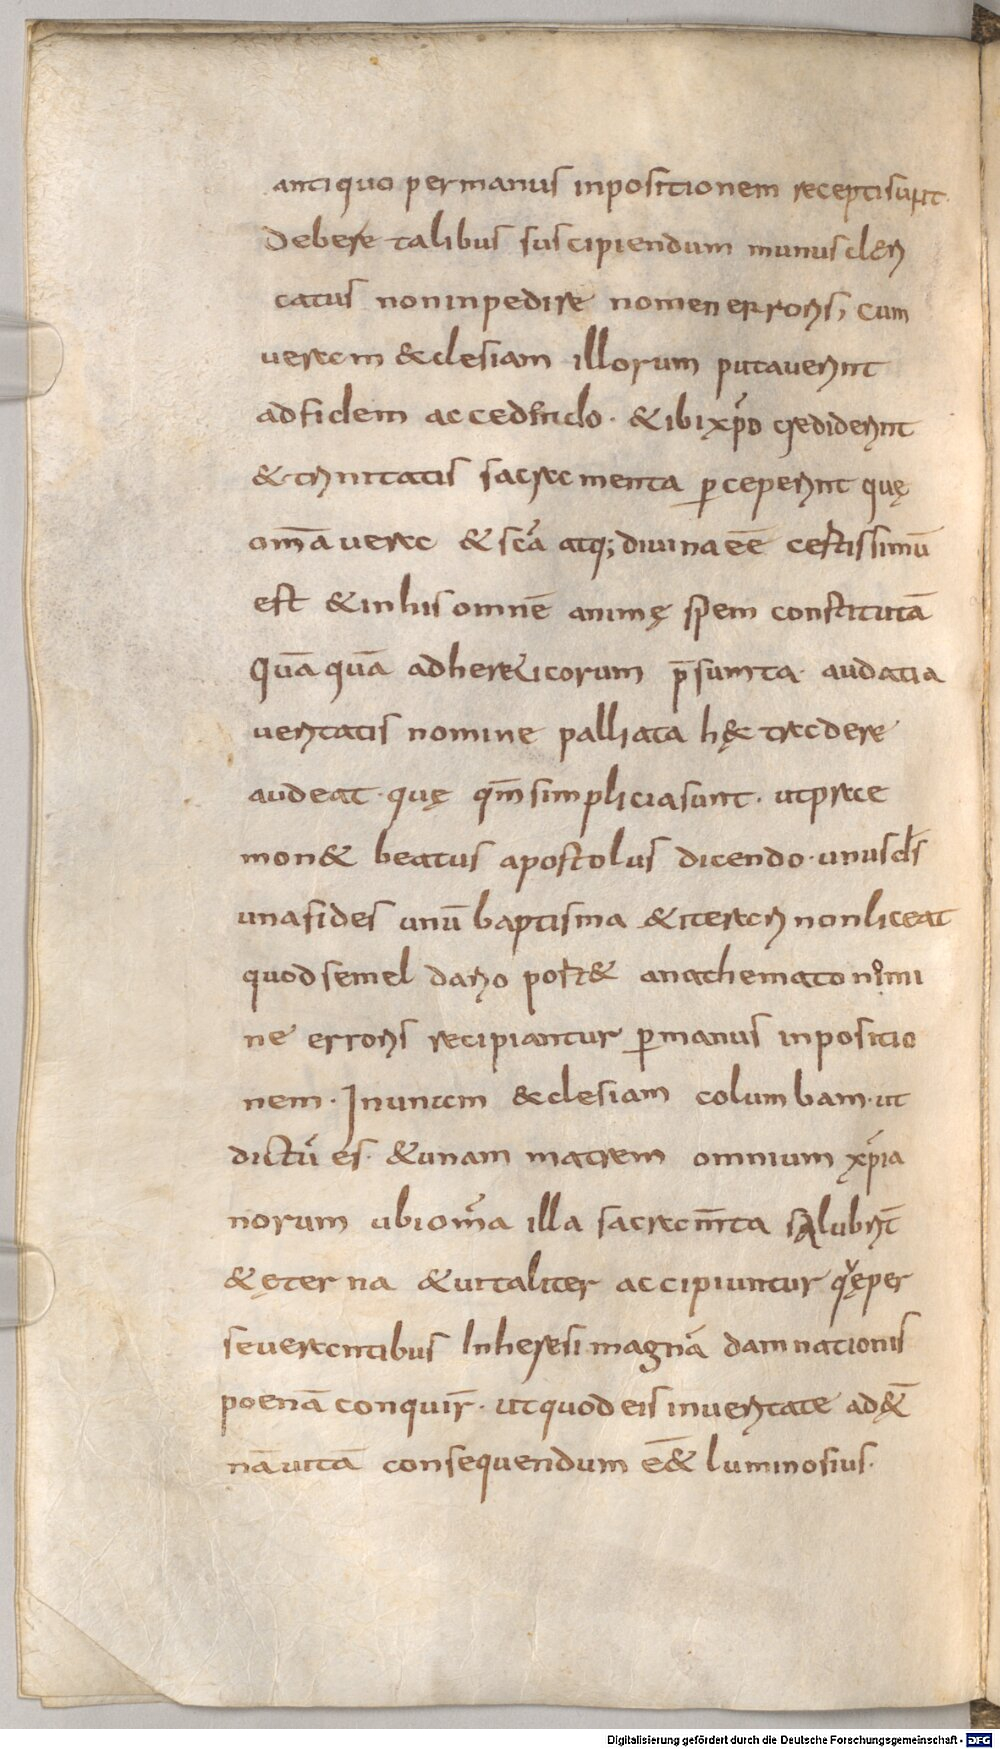 antiquo permanus inpositionem receptisunt.
Debere talibus suscipiendum munus cleri
catus noninpedire nomen erroris, cum
veram &clesiam illorum putaverint
adfidem accedendo. & ibi xp̄o crediderint
& trinitatis sacramenta p̱ceperint quę
om̄a vera & sc̄a atq; divina eē certissimū
est & inhis omnē animę spem constitutā
Quā quā adher&icorum p̄sumta audatia
veritatis nomine palliata hę& tradere
audeat. quę qm̄ simplicia sunt. utprae
mon& beatus apostolus dicendo. unus ds̄
una fides unū baptisma & iterari nonliceat
quod semel dario port& anathemato nomi
ne erroris recipiantur p̱manus inpositio
nem. Inunam &clesiam columbam. ut
dictū es. & unam matrem omnium xp̄ia
norum ubi om̄a illa sacram̄ta salubrit̄
& ęterna & vitaliter accipiuntur quęper
severantibus Inheresi magnā damnationis
poenā conquir̄. utquod eis inveritate ad&̄
nā vitā consequendum ē& luminosius.
Digitalisierung gefördert durch die Deutsche Forschungsgemeinschaft - DFG